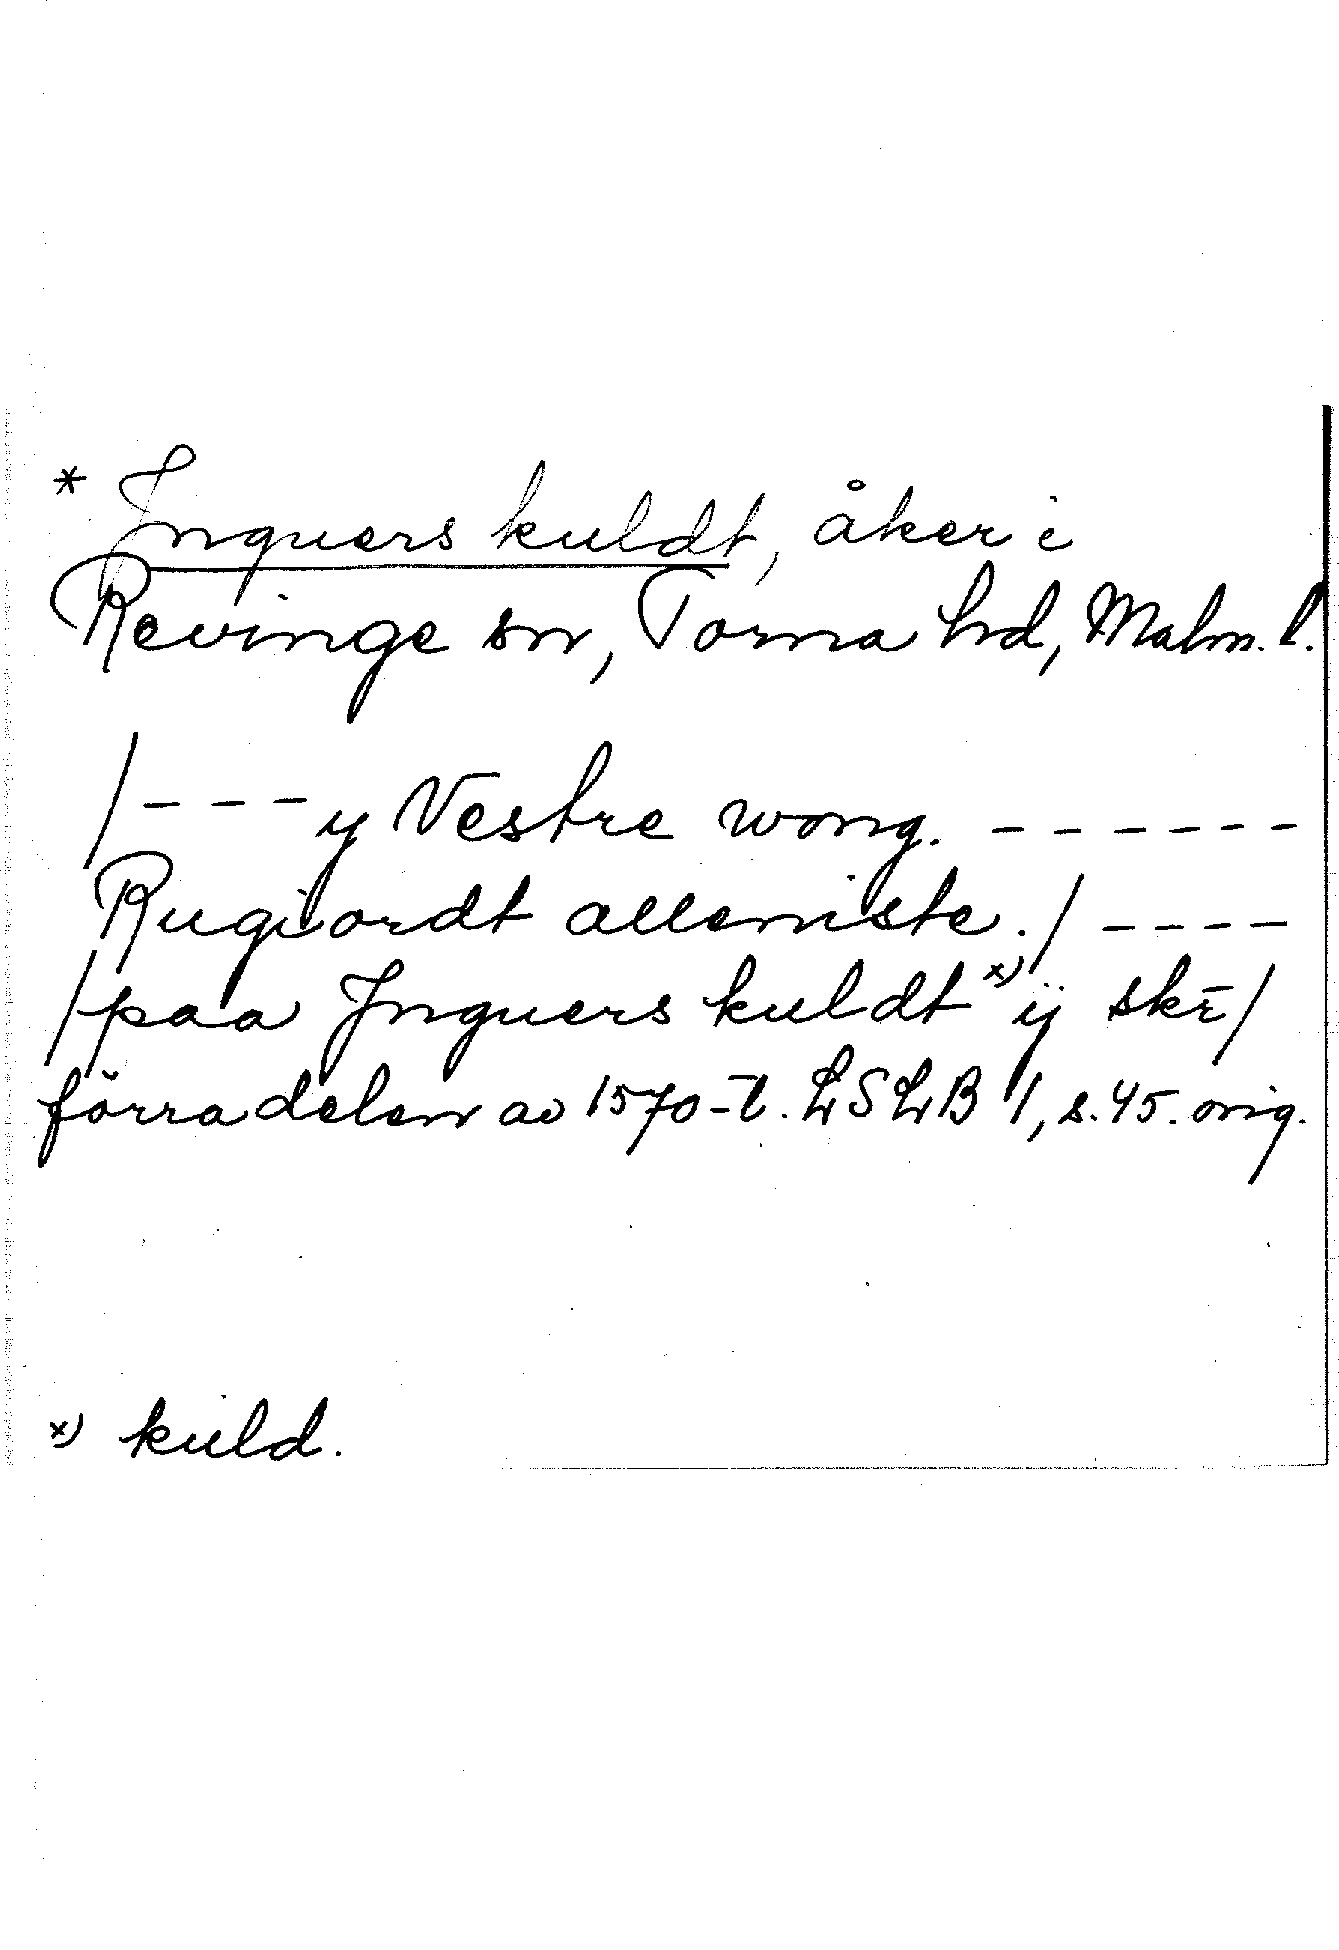 * Inguers kuldt, åker i
Revinge sn, Torna hrd, Malm. l.
/--- y Vestre wong. ------
Rugiordt alleniste./ ----
/paa Inguers kuldt x) ÿ skr̄/
förra delen av 1570-t. LSLB 1, s.45. orig.
x) kuld.